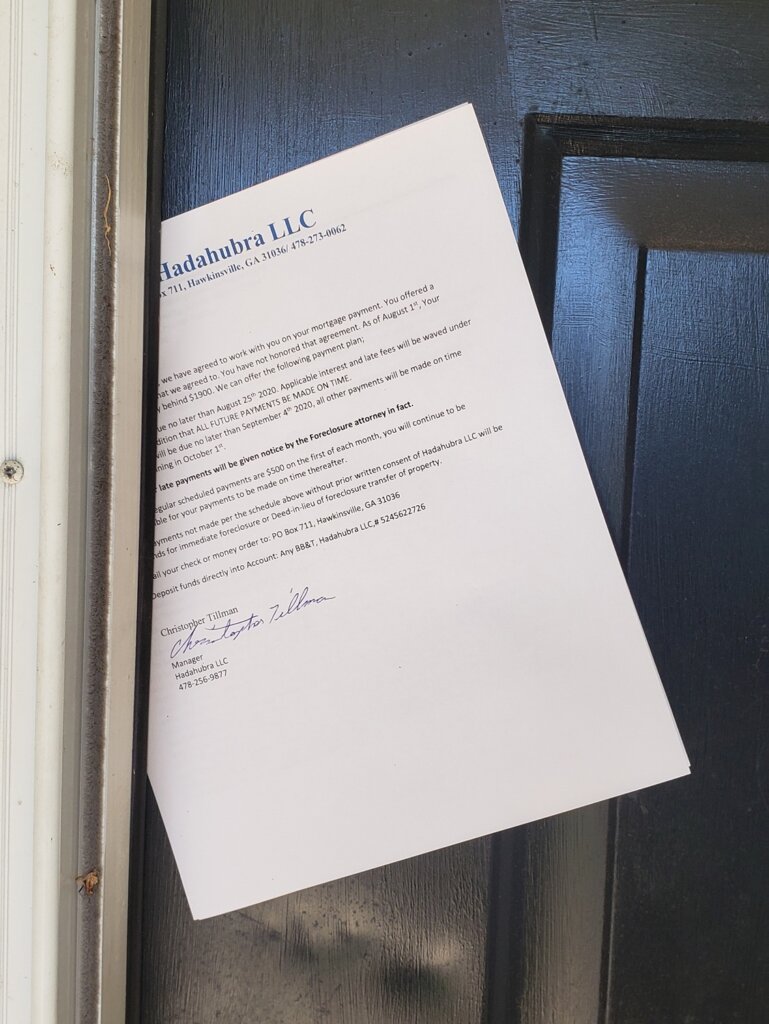 Hadahubra LLC
x 711, Hawkinsville, GA 31036/ 478-273-0062
we have agreed to work with you on your mortgage payment. You offered a
hat we agreed to. You have not honored that agreement. As of August 1st, Your
y behind $1900. We can offer the following payment plan;
ue no later than August 25th 2020. Applicable interest and late fees will be waved under
dition that ALL FUTURE PAYMENTS BE MADE ON TIME.
vill be due no later than September 4th 2020, all other payments will be made on time
ning in October 1st.
late payments will be given notice by the Foreclosure attorney in fact.
egular scheduled payments are $500 on the first of each month, you will continue to be
ble for your payments to be made on time thereafter.
ayments not made per the schedule above without prior written consent of Hadahubra LLC will be
nds for immediate foreclosure or Deed-in-lieu of foreclosure transfer of property.
ail your check or money order to: PO Box 711, Hawkinsville, GA 31036
Deposit funds directly into Account: Any BB&T, Hadahubra LLC,# 5245622726
Christopher Tillman
Christopher Tillman
Manager
Hadahubra LLC
478-256-9877